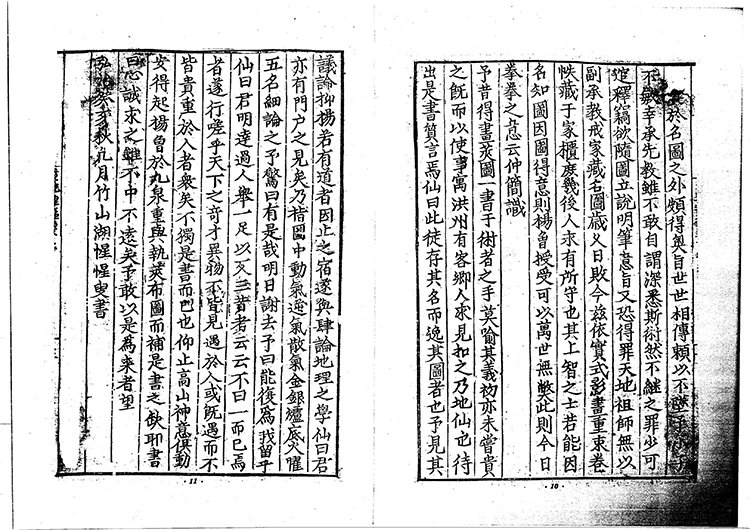 於名圖之外頗得奧旨世世相傳賴以不墜
不 幸承先教雖不敢自謂深悉斯術然不継之罪少可
逭釋竊欲隨圖立說明筆意旨又恐得罪天地祖師無以
副承教戒家藏右圖歲乂日敗今玆依實式影畫重束卷
帙藏于家櫃庶幾後人永有所守也其上智之士若能因
名知圖因圖得意則楊曾授受可以萬世無獘此則今日
拳拳之意云仲簡識
予昔得書莢圖一書于術者之手莫喻其義初亦未嘗貴
之既而以使事寓洪州有客鄉人求見扣之乃地仙也待
出是書質言焉仙曰此徒存其名而逸其圖者也予見其
10
議論抑揚若有道者因止之宿遂與肆論地理之學仙曰君
亦有門户之見矣乃指圖中動氣逆氣散氣金銀爐底火曜
五名細論之予驚曰有是哉明日謝去予曰能復為我留乎
仙曰君明達過人舉一足以反三者云云不曰一而已焉
者遂行嗟乎天下之奇才異物不皆見遇於人或既遇而不
皆貴重於人者衆矣不獨是書而已也仰止高山神意俱動
安得起楊曾於九泉重與執莢布圖而補是書之缺耶書
曰心誠求之雖不中不遠矣予敢以是為来者望
秋九月竹山湖惺惺叟書
11